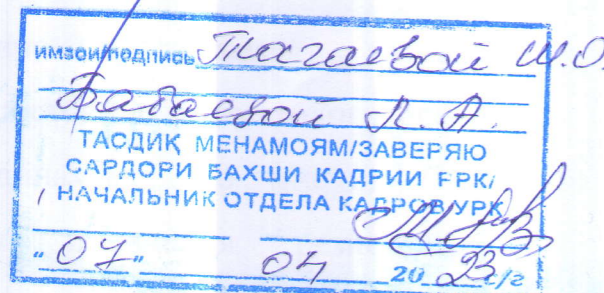 имзои/подпись Тагаевой Ш.О.
Бабаевой Л. А.
ТАСДИҚ МЕНАМОЯМ/ЗАВЕРЯЮ
САРДОРИ БАХШИ КАДРИИ РРК/
НАЧАЛЬНИК ОТДЕЛА КАДРОВ УРК
"07" 04 2023 с/г